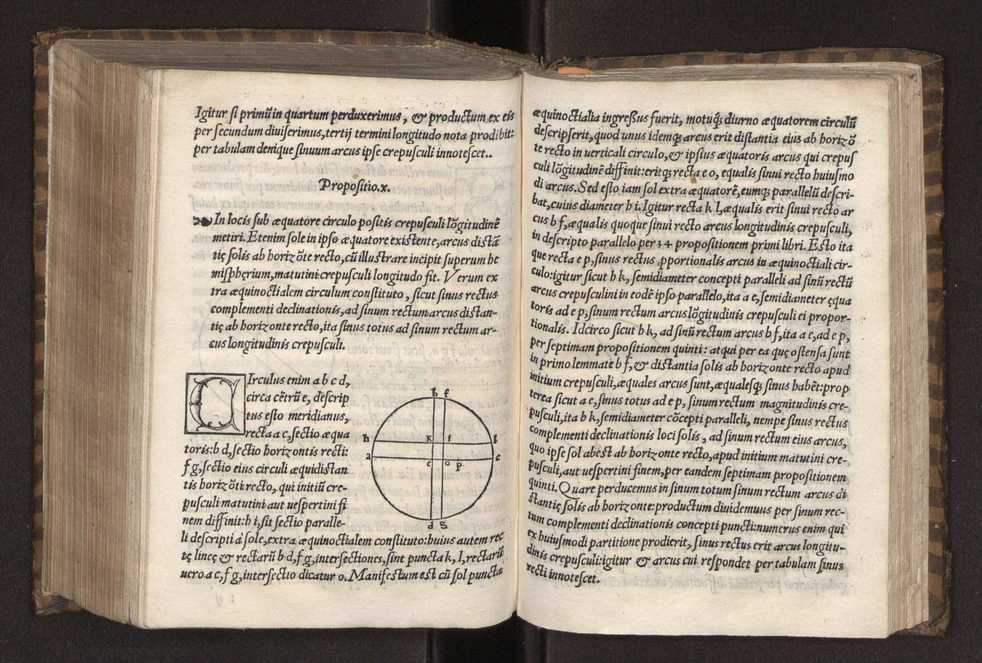 Igitur si primũ in quartum perduxerimus, & productum ex eis
per secundum diuiserimus, tertij termini longitudo nota prodibit:
per tabulam denique sinuum arcus ipse crepusculi innotescet..
Propositio.x.
In locis sub æquatore circulo positis crepusculi lõgitudinẽ
metiri. Etenim sole in ipso æquatore existente, arcus distã
tię solis ab horizõte recto, cũ illustrare incipit superum he
misphęrium, matutini crepusculi longitudo fit. Verum ex
tra æquinoctialem circulum constituto, sicut sinus rectus
complementi declinationis, ad sinum rectum arcus distan-
tię ab horizonte recto, ita sinus totus ad sinum rectum ar-
cus longitudinis crepusculi.
CIrculus enim a b c d,
circa cẽtrũ e, descrip
tus esto meridianus,
recta a c, sectio æqua
toris: b d, sectio horizontis recti:
f g, sectio eius circuli æquidistan
tis horizõti recto, qui initiũ cre-
pusculi matutini aut vespertini fi
nem diffinit: h i, sit sectio paralle-
li descripti à sole, extra æquinoctialem constituto: huius autem rec
tę lineę & rectarũ b d, f g, intersectiones, sint puncta k, l, rectarũ
uero a c, f g, intersectio dicatur o. Manifestum est cũ sol puncta
b f
h k l g
a e o p c
d S
æquinoctialia ingressus fuerit, motuq; diurno æquatorem circulũ
descripserit, quod unus idemq; arcus erit distantia eius ab horizõ
te recto in verticali circulo, & ipsius æquatoris arcus qui crepus
culi lõgitudinẽ diffinit: eritq; recta e o, equalis sinui recto huiusmo
di arcus. Sed esto iam sol extra æquatorẽ, eumq; parallelũ descri-
bat, cuius diameter h i. Igitur recta k l, æqualis erit sinui recto ar
cus b f, æqualis quoque sinui recto arcus longitudinis crepusculi,
in descripto parallelo per 34 propositionem primi libri. Esto ita
que recta e p, sinus rectus ꝓportionalis arcus in æquinoctiali cir-
culo: igitur sicut h k, semidiameter concepti paralleli ad sinũ rectũ
arcus crepusculini in eodẽ ipso parallelo, ita a e, semidiameter ęqua
toris ad e p, sinum rectum arcus lõgitudinis crepusculi ei propor-
tionalis. Idcirco sicut h k, ad sinũ rectum arcus b f, ita a e, ad e p,
per septimam propositionem quinti: atqui per ea quę ostensa sunt
in primo lemmate b f, & distantia solis ab horizonte recto apud
initium crepusculi, æquales arcus sunt, æqualesq; sinus habẽt: prop
terea sicut a e, sinus totus ad e p, sinum rectum magnitudinis cre-
pusculi, ita h k, semidiameter cõcepti paralleli, nempe sinus rectus
complementi declinationis loci solis, ad sinum rectum eius arcus,
quo ipse sol abest ab horizonte recto, apud initium matutini cre-
pusculi, aut uespertini finem, per eandem septimam propositionem
quinti. Quare perducemus in sinum totum sinum rectum arcus di
stantię solis ab horizonte: productum diuidemus per sinum rec-
tum complementi declinationis concepti puncti: numerus enim qui
ex huiusmodi partitione prodierit, sinus rectus erit arcus longitu-
dinis crepusculi: igitur & arcus cui respondet per tabulam sinus
recti innotescet.